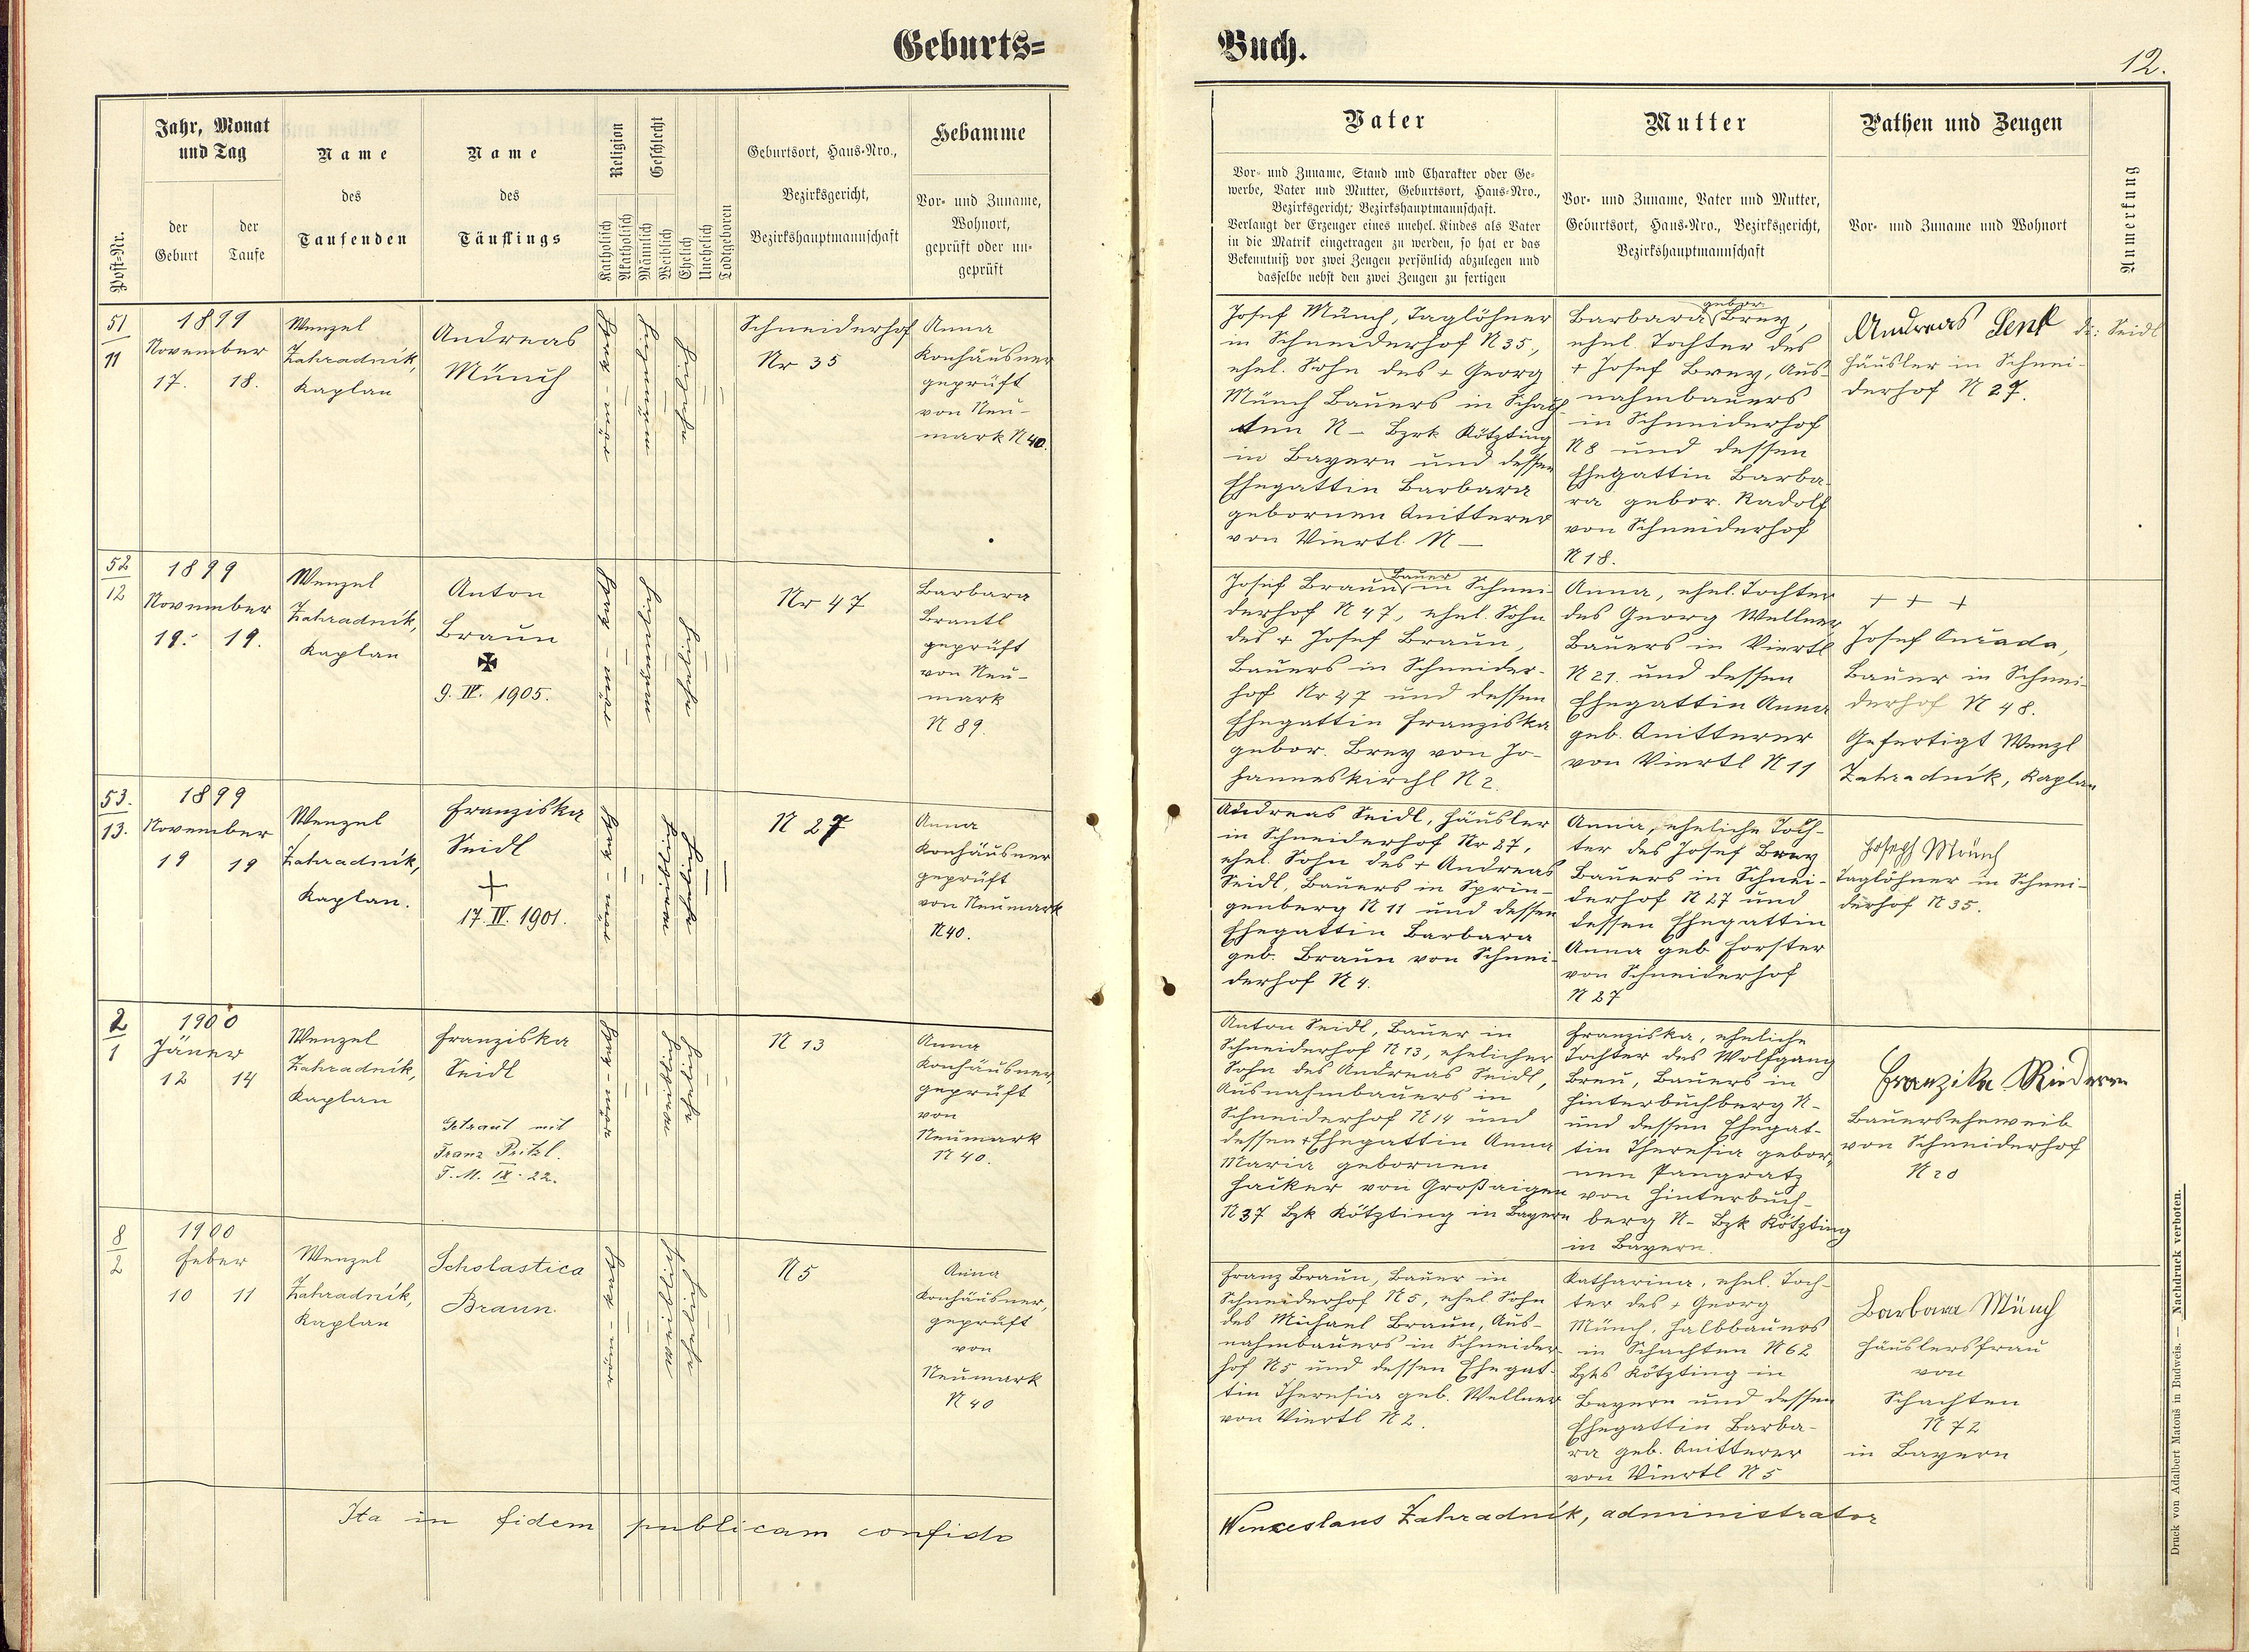 Geburts=
Buch.
12.
Jahr, Monat
und Tag
der
Geburt
der
Taufe
Post-Nr.
Name
des
Taufenden
Name
des
Täuflings
Religion
Katholisch
Akatholisch
Geschlecht
Männlich
Weiblich
Ehelich
Unehelich
Todtgeboren
Geburtsort, Haus-Nro.,
Bezirksgericht,
Bezirkshauptmannschaft
Hebamme
Vor- und Zuname,
Wohnort,
geprüft oder un-
geprüft
Vater
Vor- und Zuname, Stand und Charakter oder Ge-
werbe, Vater und Mutter, Geburtsort, Haus-Nro.,
Bezirksgericht; Bezirkshauptmannschaft.
Verlangt der Erzeuger eines unehel. Kindes als Vater
in die Matrik eingetragen zu werden, so hat er das
Bekenntniß vor zwei Zeugen persönlich abzulegen und
dasselbe nebst den zwei Zeugen zu fertigen
Mutter
Vor- und Zuname, Vater und Mutter,
Geburtsort, Haus-Nro., Bezirksgericht,
Bezirkshauptmannschaft
Pathen und Zeugen
Vor- und Zuname und Wohnort
Anmerkung
51
11
1899
November
17. 18.
Wenzel
Zahradník,
Kaplan
Andreas
Münch
Schneiderhof
Nr 35
Anna
Konhäusner
geprüft
von Neu-
mark N 40.
Josef Münch, Taglöhner
in Schneiderhof N 35,
ehel. Sohn des + Georg
Münch Bauers in Schach
ten N – Bzrk Kötzting
in Bayern und dessen
Ehegattin Barbara
gebornen Anitterer
von Viertl N –
gebor.
Barbara Brey,
ehel. Tochter des
+ Josef Brey, Aus-
nahmbauers
in Schneiderhof
N 8 und dessen
Ehegattin Barba-
ra gebor. Radolf
von Schneiderhof
N 18.
Andreas Senft
Häusler in Schnei-
derhof N 27.
Seidl
52
12
1899
November
19. 19.
Wenzel
Zahradník,
Kaplan
Anton
Braun
9. IV. 1905.
Nr 47
Barbara
Brantl
geprüft
von Neu-
mark
N 89.
Bauer
Josef Braun in Schnei-
derhof N 47, ehel. Sohn
des + Josef Braun,
Bauers in Schneider-
hof Nr 47 und dessen
Ehegattin Franziska
gebor. Brey von Jo-
hanneskirchl N 2.
Anna, ehel. Tochter
des Georg Wellner
Bauers in Viertl
N 21. und dessen
Ehegattin Anna
geb. Anitterer
von Viertl N 11
+ + +
Josef
Bauer in Schnei-
derhof N 48.
Gefertigt Wenzl
Zahradník, Kaplan
53.
13.
1899
November
19 19
Wenzel
Zahradník,
Kaplan.
Franziska
Seidl
+
17. IV. 1901.
N 27
Anna
Konhäusner
geprüft
von Neumark
N 40.
Andreas Seidl, Häusler
in Schneiderhof Nr 27,
ehel. Sohn des + Andreas
Seidl, Bauers in Sprin-
genberg N 11 und dessen
Ehegattin Barbara
geb. Braun von Schnei-
derhof N 4.
Anna, eheliche Toch-
ter des Josef Brey
Bauers in Schnei-
derhof N 27 und
dessen Ehegattin
Anna geb Forster
von Schneiderhof
N 27
Joseph Münch
Taglöhner in Schnei-
derhof N 35.
2
1
1900
Jäner
12 14
Wenzel
Zahradník,
Kaplan
Franziska
Seidl
Getraut mit
Franz Pritzl.
IX. 22.
N 13
Anna
Konhäusner,
geprüft
von
Neumark
N 40.
Anton Seidl, Bauer in
Schneiderhof N 13, ehelicher
Sohn des Andreas Seidl,
Ausnahmbauers in
Schneiderhof N 14 und
dessen + Ehegattin Anna
Maria gebornen
Hacker von Großaigen
N 37 Bzk Kötzting in Bayern
Franziska, eheliche
Tochter des Wolfgang
Breu, Bauers in
Hinterbuchberg N-
und dessen Ehegat-
tin Theresia gebor-
nen Pangratz
von Hinterbuch-
berg N- Bzk Kötzting
in Bayern.
Franzika Riederer
Bauerseheweib
von Schneiderhof
N 20
8
2
1900
Feber
10 11
Wenzel
Zahradník,
Kaplan
Scholastica
Braun
N 5
Anna
Konhäusner,
geprüft
von
Neumark
N 40
Franz Braun, Bauer in
Schneiderhof N 5, ehel. Sohn
des Michael Braun, Aus-
nahmbauers in Schneider-
hof N 5 und dessen Ehegat-
tin Theresia geb. Wellner
von Viertl N 2.
Katharina, ehel. Toch-
ter des + Georg
Münch, Halbbauers
in Schachten N 62
Bzks Kötzting in
Bayern und dessen
Ehegattin Barba-
ra geb. Anitterer
von Viertl N 5
Barbara Münch
Häuslersfrau
von
Schachten
N 72
in Bayern
Ita in fidem publicam confido
Wenceslaus Zahradník, administrator
Druck von Adalbert Matouš in Budweis. — Nachdruck verboten.